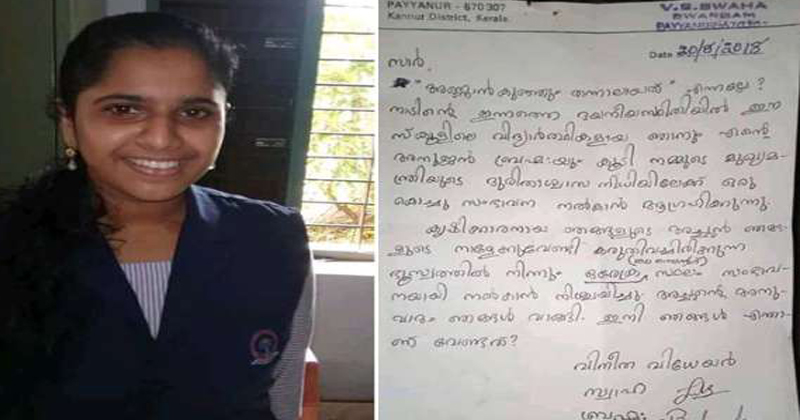 PAYYANUR - 670307
Kannur District, Kerala
V.S.SWAHA
SWANSAM
Date 20/8/2018
സാർ,
"അണ്ണാൻകുഞ്ഞും തന്നാലായത്" എന്നല്ലേ?
നാടിന്റെ ഇന്നത്തെ ദയനീയസ്ഥിതിയിൽ ഈ
സ്കൂളിലെ വിദ്യാർത്ഥികളായ ഞാനും എന്റെ
അനുജൻ ബ്രഹ്മയും കൂടി നമ്മുടെ മുഖ്യമ-
ന്ത്രിയുടെ ദുരിതാശ്വാസ നിധിയിലേക്ക് ഒരു
കൊച്ചു സംഭാവന നൽകാൻ ആഗ്രഹിക്കുന്നു.
കൃഷിക്കാരനായ ഞങ്ങളുടെ അച്ഛൻ ഞങ്ങ-
ളുടെ നാളേക്കുവേണ്ടി കരുതിവച്ചിരിക്കുന്ന
ഭൂസ്വത്തിൽ നിന്നും ഒരേക്ര സ്ഥലം സംഭാവ-
നയായി നൽകാൻ നിശ്ചയിച്ചു. അച്ഛന്റെ അനു-
വാദം ഞങ്ങൾ വാങ്ങി. ഇനി ഞങ്ങൾ എന്താ-
ണ് വേണ്ടത്?
വിനീത വിധേയർ
സ്വാഹ